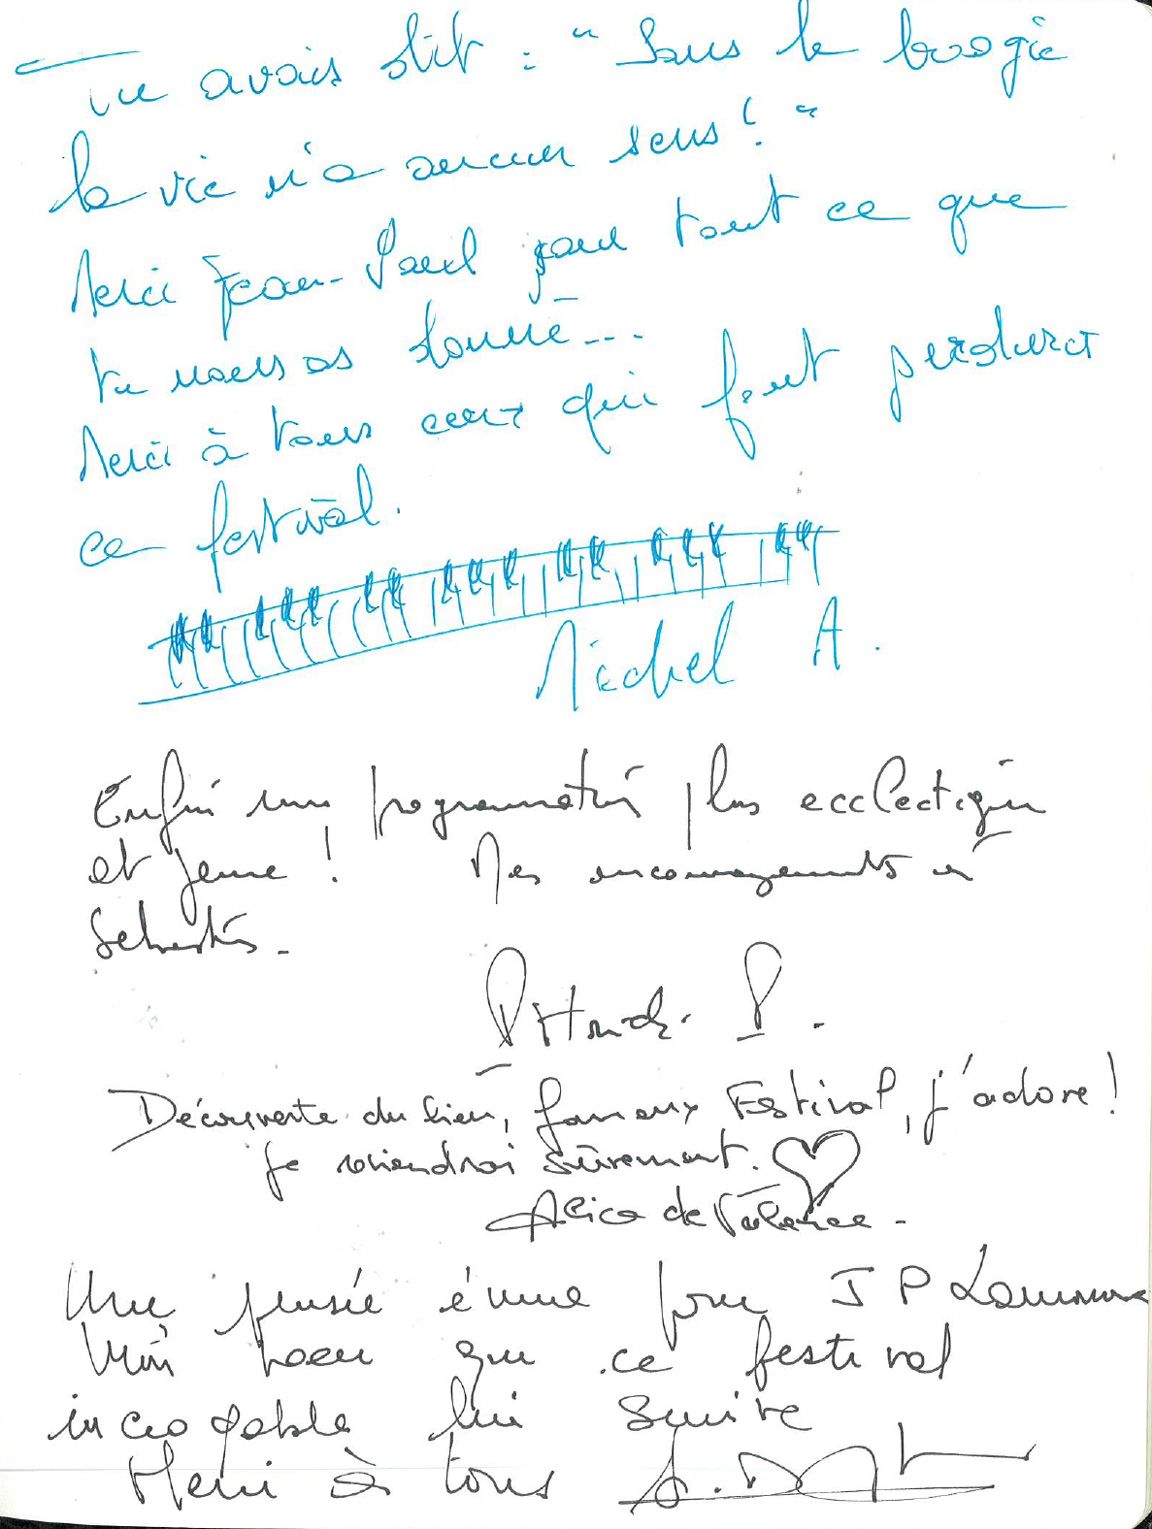 Tu avais dit : "Sans le boogie
la vie n'a aucun sens ! "
Merci Jean-Paul pour tout ce que
tu nous as donné...
Merci à tous ceux qui font perdurer
ce festival.
Michel A.
Enfin une programmation plus ecclectique
et jeune ! Mes encouragements à
Sébastien.
P.
Découverte du lieu, fameux Festival, j'adore !
Je reviendrai sûrement.
Alice de Valence.
Une pensée émue pour J P
pour que ce festival
incroyable lui
Merci à tous